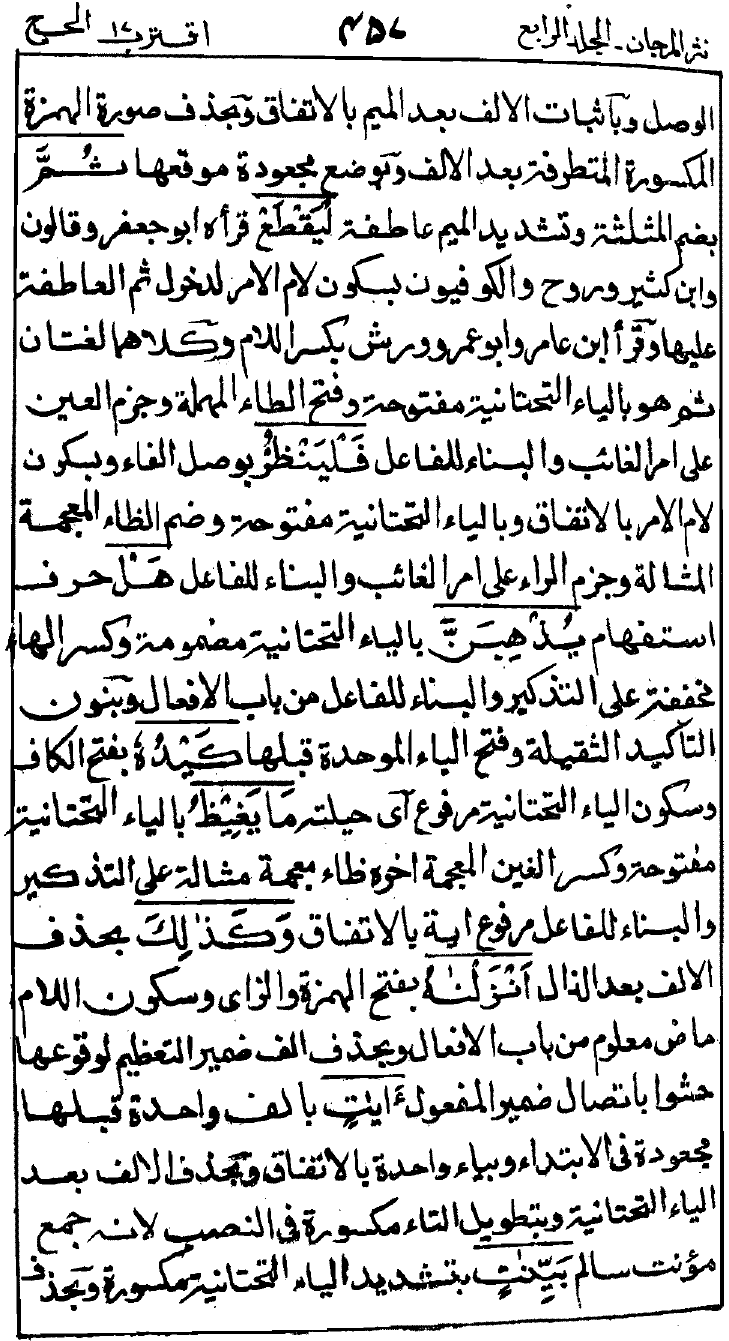 نثر المرجان ـ الجلد الرابع ٤٥٧ اقترب ١٧ الحج
الوصل وبآثبات الالف بعد الميم بالاتفاق وبحذف صورة الهمزة
المكسورة المتطرفة بعد الالف وبوضع مجعودة موقعها ثُمَّ
بضم المثلثة وتشديد الميم عاطفة لْيَقْطَعْ قرأه ابو جعفر وقالون
وابن كثير وروح والكوفيون بسكون لام الامر لدخول ثم العاطفة
عليها وقرأ ابن عامر وابو عمرو وورش بكسر اللام وكلاهما لغتان
ثم هو بالياء التحتانية مفتوحة وفتح الطاء المهملة وجزم العين
على امر الغائب والبناء للفاعل فَلْيَنْظُرْ بوصل الفاء وبسكون
لام الامر بالاتفاق وبالياء التحتانية مفتوحة وضم الظاء المعجمة
المشالة وجزم الراء على امر الغائب والبناء للفاعل هَلْ حرف
استفهام يُذْهِبَنَّ بالياء التحتانية مضمومة وكسر الهاء
مخففة على التذكير والبناء للفاعل من باب الافعال وبنون
التاكيد الثقيلة وفتح الباء الموحدة قبلها كَيْدُهُ بفتح الكاف
وسكون الياء التحتانية مرفوع آى حيلته مَا يَغِيْظُ بالياء التحتانية
مفتوحة وكسر الغين المعجمة اخره ظاء معجمة مشالة على التذكير
والبناء للفاعل مرفوع اية بالاتفاق وَكَذٰلِكَ بحذف
الالف بعد الذال اَنْزَلْنٰهُ بفتح الهمزة والزاى وسكون اللام
ماض معلوم من باب الافعال وبحذف الف ضمير التعظيم لوقوعها
حشوا باتصال ضمير المفعول ءَايٰتٍ بالف واحدة قبلها
مجعودة فى الابتداء وبياء واحدة بالاتفاق وبحذف الالف بعد
الياء التحتانية وبتطويل التاء مكسورة فى النصب لانه جمع
مؤنث سالم بَيِّنٰتٍ بتشديد الياء التحتانية مكسورة وبحذف